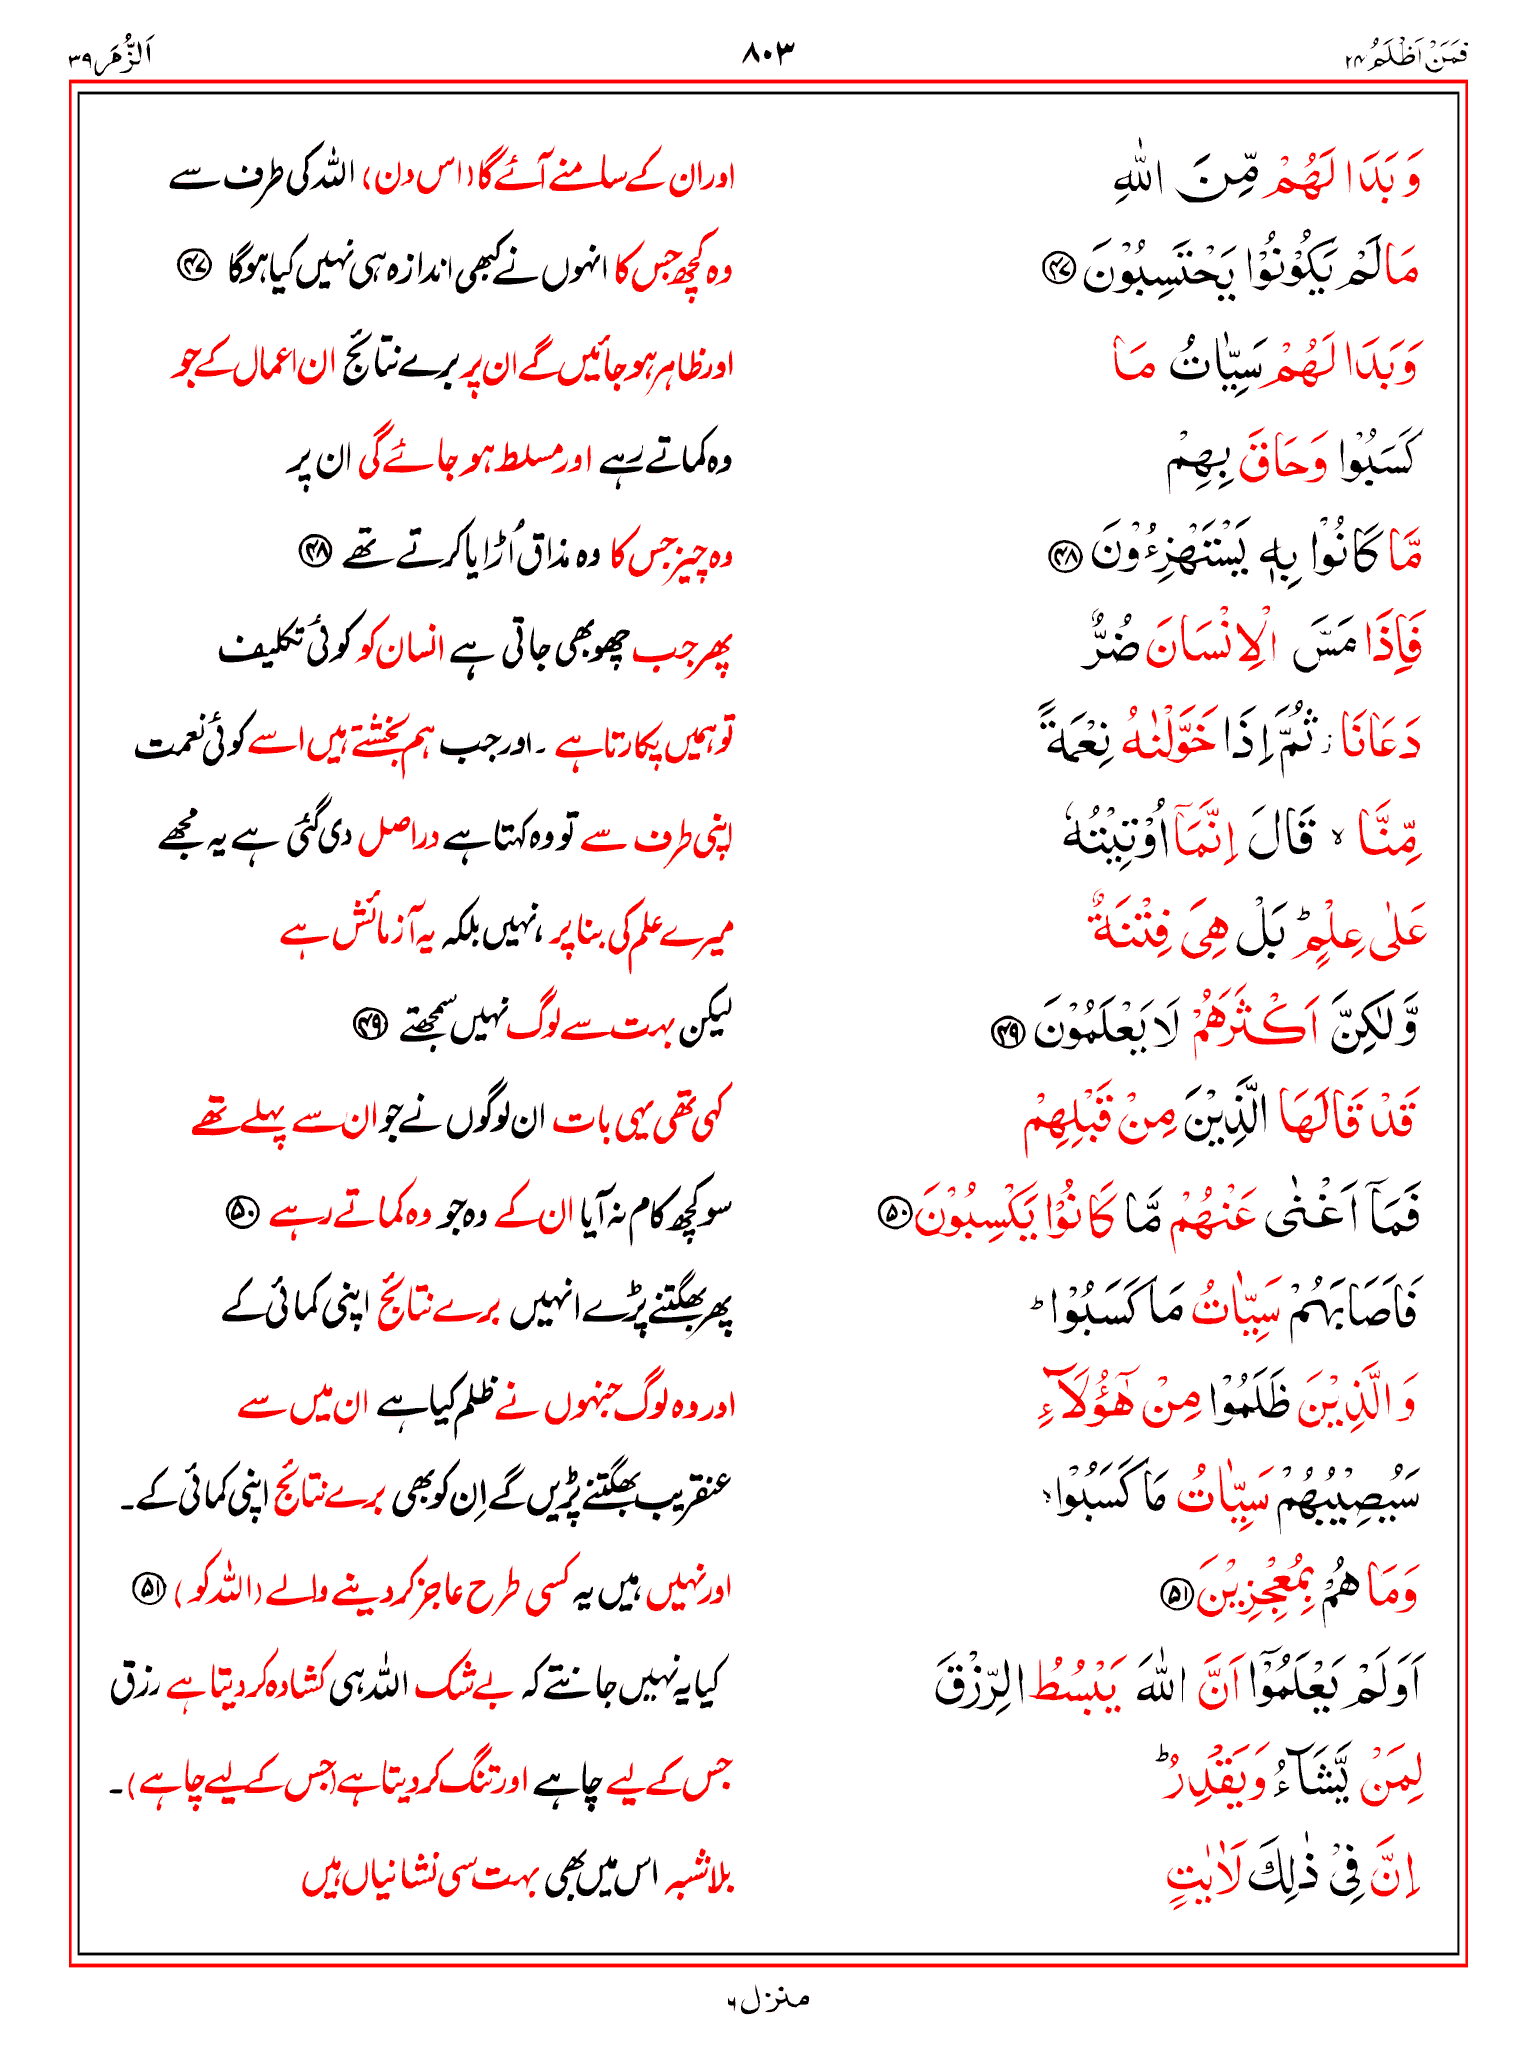 فَمَنْ اَظْلَمُ ٢٤ ٨٠٣ اَلزُّمَر ٣٩
وَبَدَا لَهُمْ مِّنَ اللّٰهِ اور ان کے سامنے آئے گا (اس دن) اللہ کی طرف سے
مَا لَمْ يَكُوْنُوْا يَحْتَسِبُوْنَ ۴۷ وہ کچھ جس کا انہوں نے کبھی اندازہ ہی نہیں کیا ہوگا ۴۷
وَبَدَا لَهُمْ سَيِّاٰتُ مَا اور ظاہر ہو جائیں گے ان پر برے نتائج ان اعمال کے جو
كَسَبُوْا وَحَاقَ بِهِمْ وہ کماتے رہے اور مسلط ہو جائے گی ان پر
مَّا كَانُوْا بِهٖ يَسْتَهْزِءُوْنَ ۴۸ وہ چیز جس کا وہ مذاق اُڑایا کرتے تھے ۴۸
فَاِذَا مَسَّ الْاِنْسَانَ ضُرٌّ پھر جب چھو بھی جاتی ہے انسان کو کوئی تکلیف
دَعَانَا ز ثُمَّ اِذَا خَوَّلْنٰهُ نِعْمَةً تو ہمیں پکارتا ہے ۔ اور جب ہم بخشتے ہیں اسے کوئی نعمت
مِّنَّا ۙ قَالَ اِنَّمَآ اُوْتِيْتُهٗ اپنی طرف سے تو وہ کہتا ہے دراصل دی گئی ہے یہ مجھے
عَلٰى عِلْمٍ ؕ بَلْ هِىَ فِتْنَةٌ میرے علم کی بنا پر ، نہیں بلکہ یہ آزمائش ہے
وَّلٰكِنَّ اَكْثَرَهُمْ لَا يَعْلَمُوْنَ ۴۹ لیکن بہت سے لوگ نہیں سمجھتے ۴۹
قَدْ قَالَهَا الَّذِيْنَ مِنْ قَبْلِهِمْ کہی تھی یہی بات ان لوگوں نے جو ان سے پہلے تھے
فَمَآ اَغْنٰى عَنْهُمْ مَّا كَانُوْا يَكْسِبُوْنَ ۵۰ سو کچھ کام نہ آیا ان کے وہ جو وہ کماتے رہے ۵۰
فَاَصَابَهُمْ سَيِّاٰتُ مَا كَسَبُوْا ؕ پھر بھگتنے پڑے انہیں برے نتائج اپنی کمائی کے
وَالَّذِيْنَ ظَلَمُوْا مِنْ هٰٓؤُلَآءِ اور وہ لوگ جنہوں نے ظلم کیا ہے ان میں سے
سَيُصِيْبُهُمْ سَيِّاٰتُ مَا كَسَبُوْا ۙ عنقریب بھگتنے پڑیں گے اِن کو بھی برے نتائج اپنی کمائی کے۔
وَمَا هُمْ بِمُعْجِزِيْنَ ۵۱ اور نہیں ہیں یہ کسی طرح عاجز کر دینے والے (اللہ کو) ۵۱
اَوَلَمْ يَعْلَمُوْٓا اَنَّ اللّٰهَ يَبْسُطُ الرِّزْقَ کیا یہ نہیں جانتے کہ بے شک اللہ ہی کشادہ کر دیتا ہے رزق
لِمَنْ يَّشَآءُ وَيَقْدِرُ ؕ جس کے لیے چاہے اور تنگ کر دیتا ہے (جس کے لیے چاہے)۔
اِنَّ فِىْ ذٰلِكَ لَاٰيٰتٍ بلاشبہ اس میں بھی بہت سی نشانیاں ہیں
منزل ۶